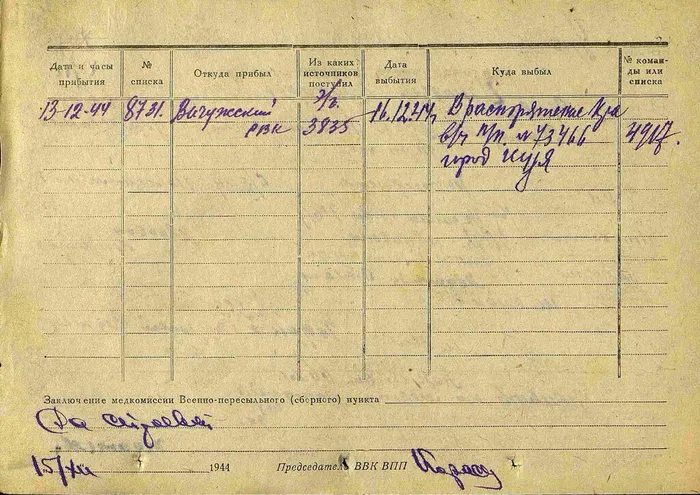 Дата и часы прибытия
№ списка
Откуда прибыл
Из каких источников поступил
Дата выбытия
Куда выбыл
№ команды или списка
13-12-44 8731. Вичужский э/г. 16.12.44г. В распоряжение К-ра
РВК 3835 в/ч п/п № 73466 4917.
город
Заключение медкомиссии Военно-пересыльного (сборного) пункта
15/XII 1944 Председатель ВВК ВПП